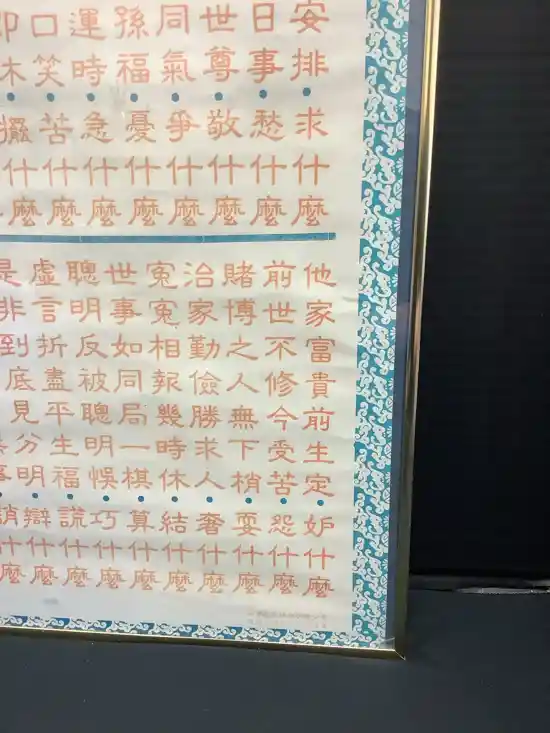 安排•求什麼
日事•愁什麼
世尊•敬什麼
同氣•爭什麼
孫福•憂什麼
運時•急什麼
口笑•苦什麼
他家富貴前生定•妒什麼
前世不修今受苦•怨什麼
賭博之人無下梢•耍什麼
治家勤儉勝求人•奢什麼
冤冤相報幾時休•結什麼
世事如同局一棋•算什麼
聰明反被聰明悞•巧什麼
虛言折盡平生福•謊什麼
是非到底見分明•辯什麼